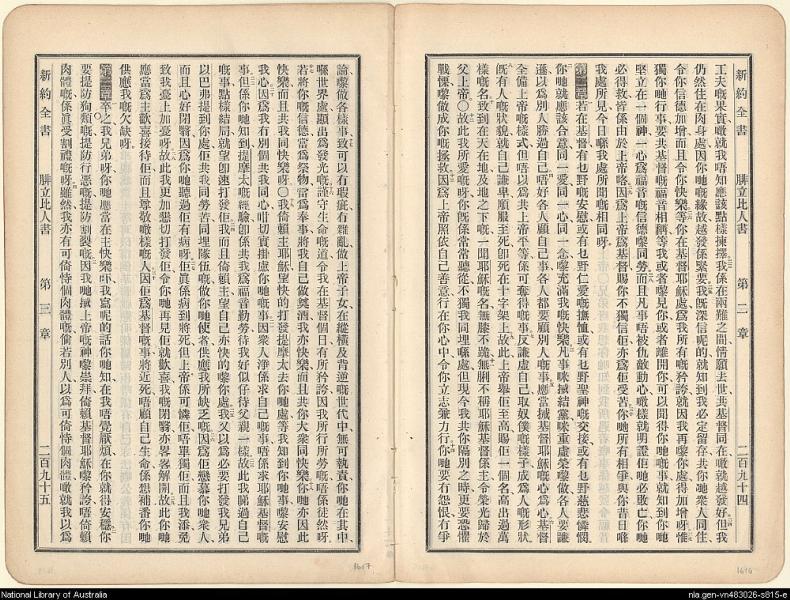 新約全書 腓立比人書 第二章 二百九十四
工夫嘅果實噉就我唔知應該點樣揀擇我係在兩難之間情願去世共基督同在噉就越發好但我
仍然住在肉身處因你哋嘅緣故越發係緊要我既深信呢的就知到我必定留存共你哋衆人同住
令你信德加增而且令你快樂等你在基督耶穌處爲我所有嘅矜誇因我再嚟你處得加增呀惟
獨你哋行事要共基督嘅福音相稱等我或者嚟見你或者離開你可以聞得你哋嘅事就知到你哋
堅立在一個神一心爲福音嘅信德嚟同勞而且凡事唔被仇敵動心噉樣就明證佢哋必敗亡你哋
必得救皆係由於上帝畧因爲上帝爲基督賜你不獨信佢亦爲佢受苦你哋所有相爭與你昔日喺
我處所見今日喺我處所聞嘅相同呀
第二章若在基督有乜野嘅安慰或有乜野仁愛嘅撫恤或有乜野聖神嘅交接或有乜野慈悲憐憫
你哋就應該合意同一愛同一心同一念嚟充滿我嘅快樂凡事咪搣結黨咪重虛榮嚟做各人要謙
遜以爲別人勝過自己唔好各人顧自己事各人都要顧別人嘅事應當搣基督耶穌嘅心爲心基督
全備上帝嘅樣式但唔以爲共上帝平等係可奪得嘅事反謙虛自己取奴僕嘅樣子成爲人嘅形狀
既有人嘅狀貌就自己謙卑順服至死卽死在十字架上故此上帝舉佢至高賜佢一個名高出過萬
樣嘅名致到在天在地及地之下嘅一聞耶穌嘅名無膝不跪無脷不稱耶穌基督係主令榮光歸於
父上帝〇故此我所愛嘅呀你既係常常聽從不獨我同埋嘅處但現今我共你隔別之時更要恐懼
戰慄嚟做成你嘅拯救因爲上帝照依自己善意行在你心中令你立志兼力行你哋要有怨恨有爭
論嚟做各樣事致可以有瑕疵有雜亂做上帝子女在縱橫及背逆嘅世代中無可執責你哋在其中
喺世界處顯出爲發光嘅謹守生命嘅道令我在基督個日有矜誇因我所行所勞嘅唔係徒然呀
若將你嘅信德當爲祭物當爲奉事將我自己做奠酒我亦快樂而且共你大衆同快樂你哋亦因此
快樂而且共我同快樂呀〇我倚賴主耶穌望快的打發提摩太去你哋處等我知到你哋事嚟安慰
我心因爲我有別個共我同心咁切實掛慮你哋嘅事因衆人淨係求自己嘅事唔係求耶穌基督嘅
事但係你哋知到提摩太嘅經驗卽係共我爲福音勤勞待我好似仔待父親一樣故此我睇過自己
嘅事點樣結局就望卽速打發佢我而且倚賴主望自己亦快的嚟你處我又以爲必要打發我兄弟
以巴弗提到你處佢共我同勞苦同埋隊伍嘅做你哋使者供應我所缺乏嘅因爲佢戀慕你哋衆人
而且心好閉翳因爲你哋聽過佢有病呀佢眞係病到將死但上帝係可憐佢唔單獨佢而且我添免
致我憂上加憂呀故此我更加懇切打發佢令你哋再見佢就歡喜我嘅閉翳亦畧畧解開故此你哋
應當爲主歡喜接待佢而且尊敬噉樣嘅人因佢爲基督嘅事將近死唔顧自己生命係想補番你哋
供應我嘅欠缺呀
第三章卒之我兄弟呀你哋應當在主快樂卟我寫呢的話你哋知在我唔覺厭煩在你就得安穩你
要提防狗類嘅提防行惡嘅提防割裂嘅因我哋搣上帝嘅神嚟崇拜倚賴基督耶穌嚟矜誇唔倚賴
肉體嘅係眞受割禮嘅呀雖然我亦有可倚恃個肉體嘅倘若別人以爲可倚恃個肉體噉就我以爲
新約全書 腓立比人書 第三章 二百九十五
1617
1616
National Library of Australia
nla.gen-vn483026-s815-e